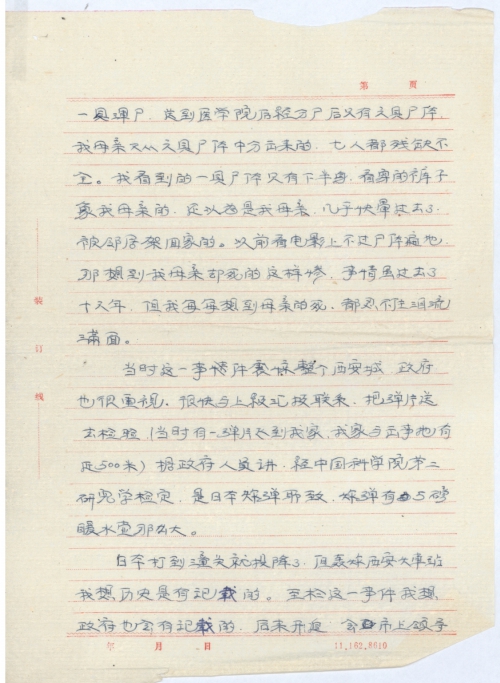 第 页
一具浑尸,送到医学院后经分尸后只有六具尸体,
我母亲又从六具尸体中分出来的,七人都残缺不
全。我看到的一具尸体只有下半身,看穿的裤子
象我母亲的,还以为是我母亲,几乎快晕过去了,
被邻居架回家的。以前看电影上不过尸体遍地,
那想到我母亲却死的这样惨,事情虽过去了
十六年,但我每每想到母亲的死,都忍不住泪流
满面。
当时这一事情 整个西安城,政府
也很重视,很快与上级汇报联系,把弹片送
去检验(当时有一弹片飞到我家,我家与出事地有
近500米)据政府人员讲,经中国科学院第二
研究学检定,是日本炸弹所致,炸弹有 5磅
暖水壶那么大。
日本打到潼关就投降了,但轰炸西安火车站
我想历史是有记载的。至于这一事件我想
政府也会有记载的,后来开追 会 市上领导
装
订
线
年 月 日
11.162.8610